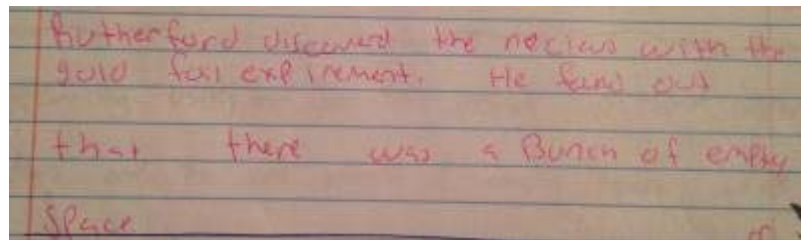 Rutherford discovered the necleus with the
gold foil expirement. He fand out
that there was a Bunch of empty
space